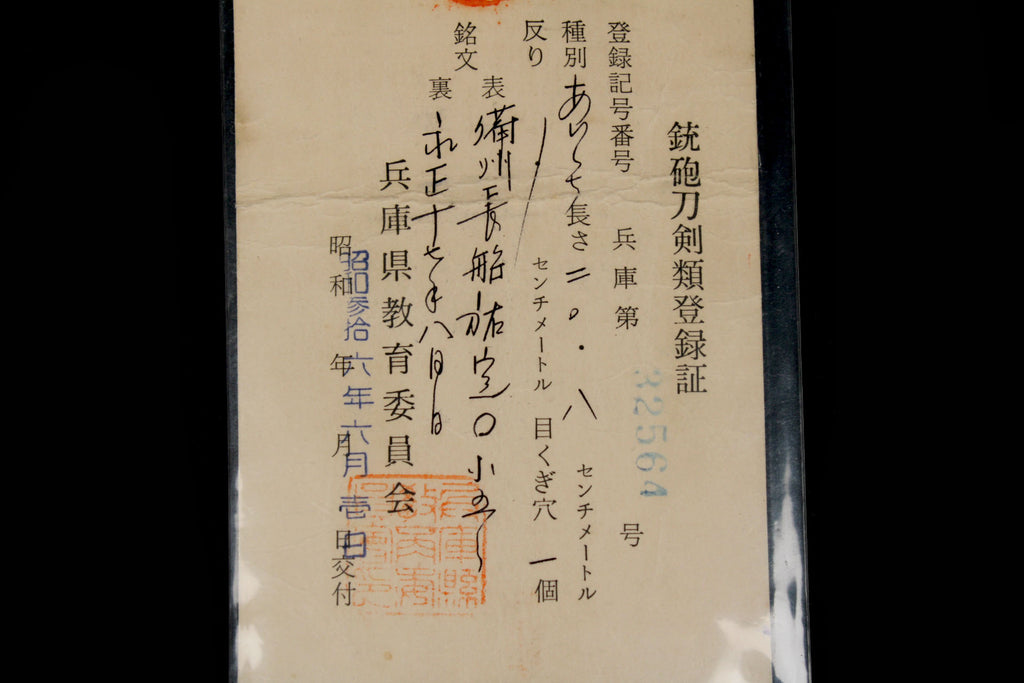 銃砲刀剣類登録証
登録記号番号 兵庫第 32564 号
種別 あいくち 長さ 二〇・八 センチメートル
反り センチメートル 目くぎ穴 一個
銘文 表 備州長船祐定
裏 永正十七年八月日
兵庫県教育委員会
昭和 年 月 日交付
昭和参拾六年六月壱日